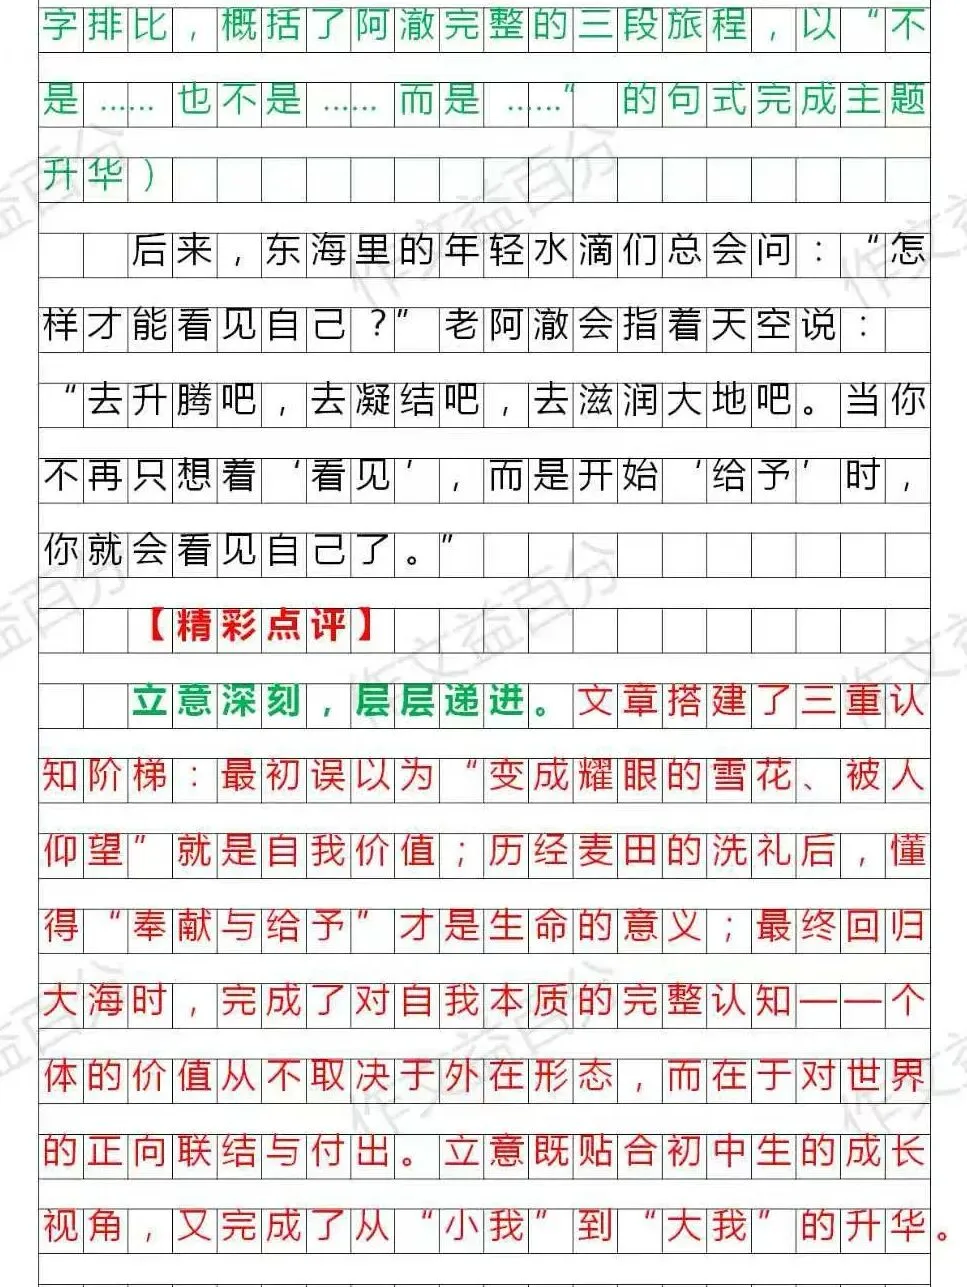 字排比，概括了阿澈完整的三段旅程，以“不
是……也不是……而是……”的句式完成主题
升华）
后来，东海里的年轻水滴们总会问：“怎
样才能看见自己？”老阿澈会指着天空说：
“去升腾吧，去凝结吧，去滋润大地吧。当你
不再只想着‘看见’，而是开始‘给予’时，
你就会看见自己了。”
【精彩点评】
立意深刻，层层递进。文章搭建了三重认
知阶梯：最初误以为“变成耀眼的雪花、被人
仰望”就是自我价值；历经麦田的洗礼后，懂
得“奉献与给予”才是生命的意义；最终回归
大海时，完成了对自我本质的完整认知——个
体的价值从不取决于外在形态，而在于对世界
的正向联结与付出。立意既贴合初中生的成长
视角，又完成了从“小我”到“大我”的升华。
作文益百分
作文益百分
作文益百分